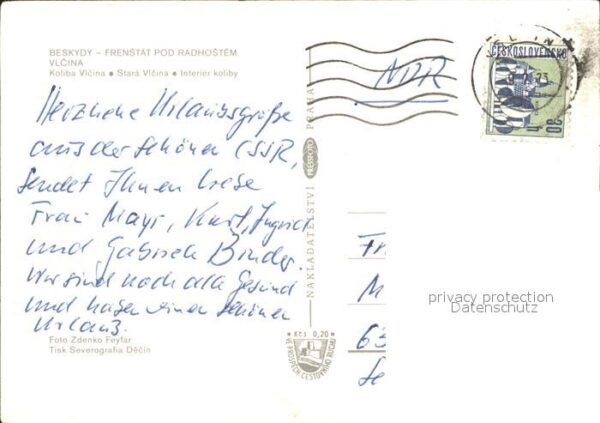 BESKYDY – FRENŠTÁT POD RADHOŠTĚM
VLČINA
Koliba Vlčina • Stará Vlčina • Interiér koliby
Herzliche Urlaubsgrüße
aus der schönen ČSSR,
sendet Ihnen liebe
Frau Mayr, Kurt, Ingrid
und Gabriele Binder.
Wir sind noch alle Gesund
und haben einen schönen
Urlaub.
Foto Zdenko Feyfar
Tisk Severografia Děčín
NAKLADATELSTVÍ PRESSFOTO PRAHA
Kčs 0,20
VE PROSPĚCH CESTOVNÍHO RUCHU
NDR
ČESKOSLOVENSKO
30 h
Fr
M
63
Se
privacy protection
Datenschutz